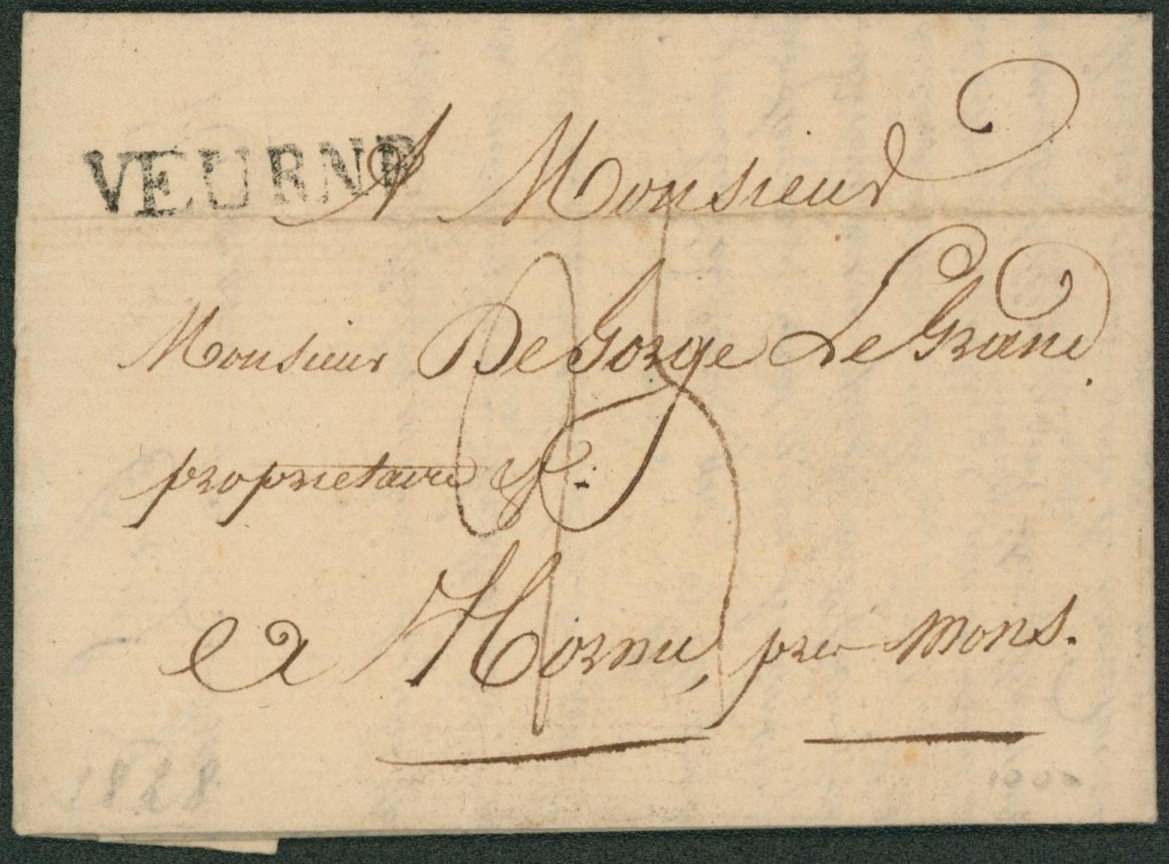 VEURNE
A Monsieur
Monsieur De Gorge Le Grand.
proprietaire &c:
a Hornu, près Mons.
25
1828